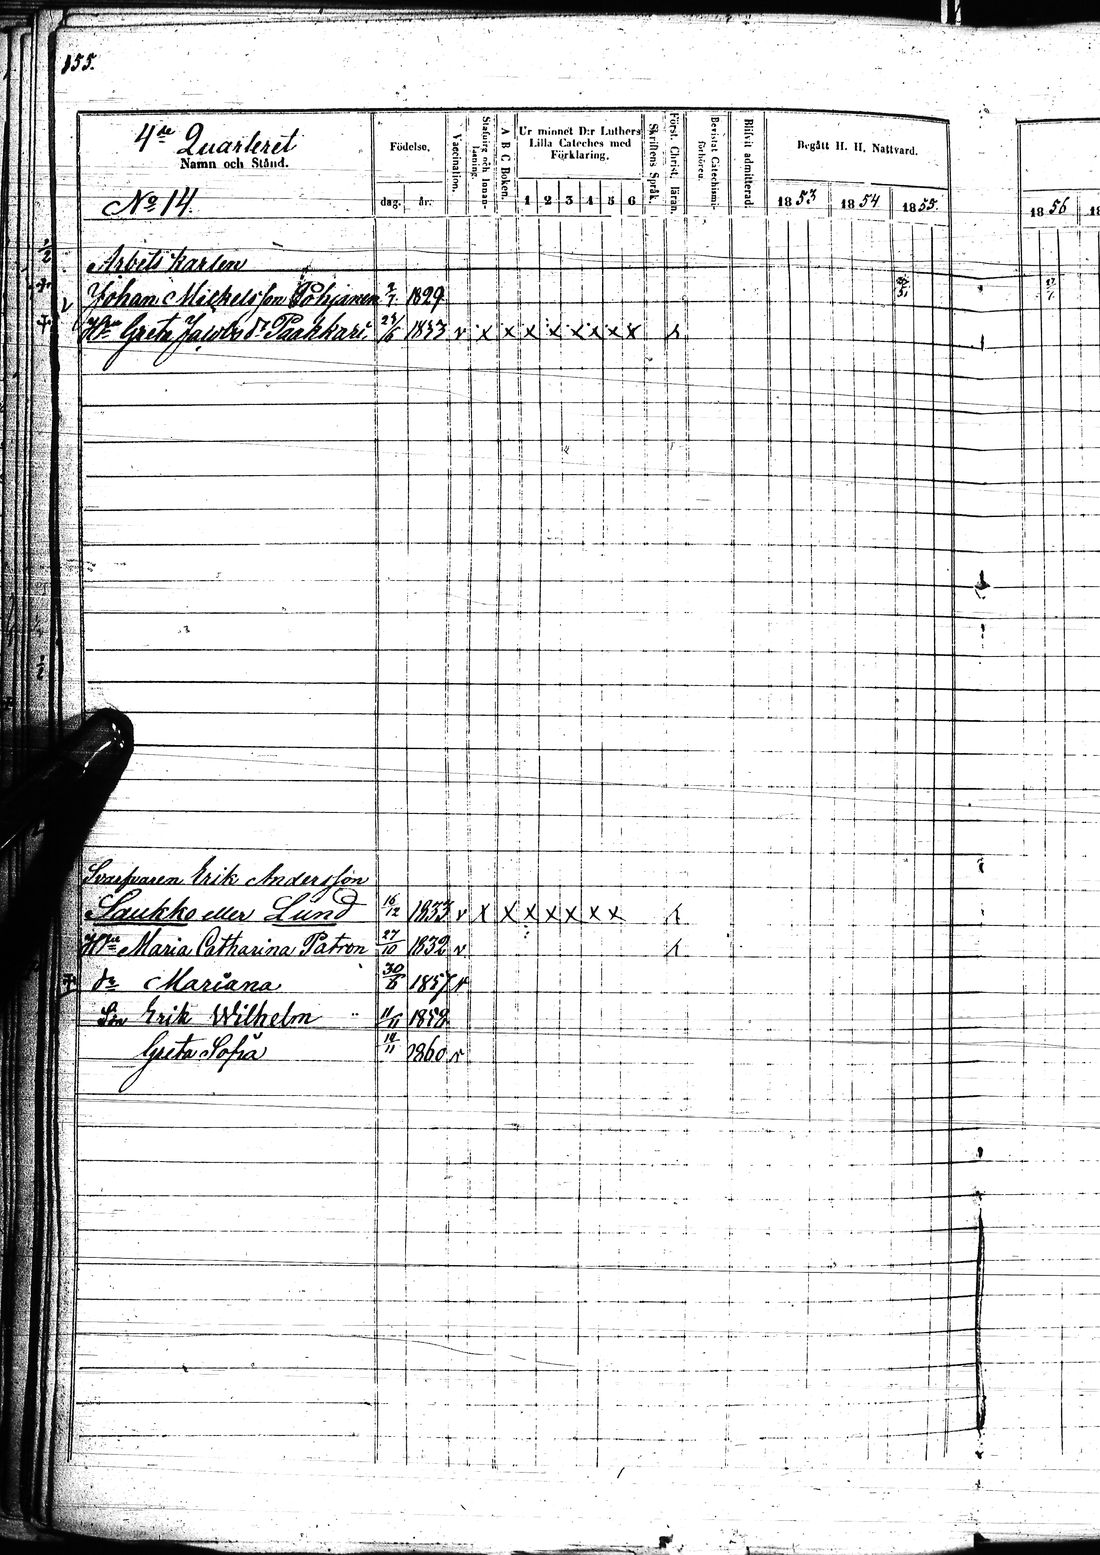 155.
4de Quarteret
Namn och Stånd.
No 14.
Födelse,
dag. år.
Vaccination.
Stafning och Innan-läsning.
A B C Boken.
Ur minnet D:r Luthers Lilla Cateches med Förklaring.
1 2 3 4 5 6
Skriftens Språk.
Förste. Christ. läran.
Bevistat Catechismi-förhören.
Blifvit admitterad.
Begått H. H. Nattvard.
1853 1854 1855.
1856
Arbets karlen
Johan Mickelsson Pohjanen 2/7 1829
Hu Greta Jacobs dr Paakkari. 1833 v x x x x x x x x
Svarfvaren Erik Andersson
Saukko eller Lund 16/12 1833 v x x x x x x x
Hu Maria Catharina Patron 27/10 1832 v
dr Mariana 30/5 1857 v
Son Erik Wilhelm 11/11 1859
Greta Sofia 1860 v